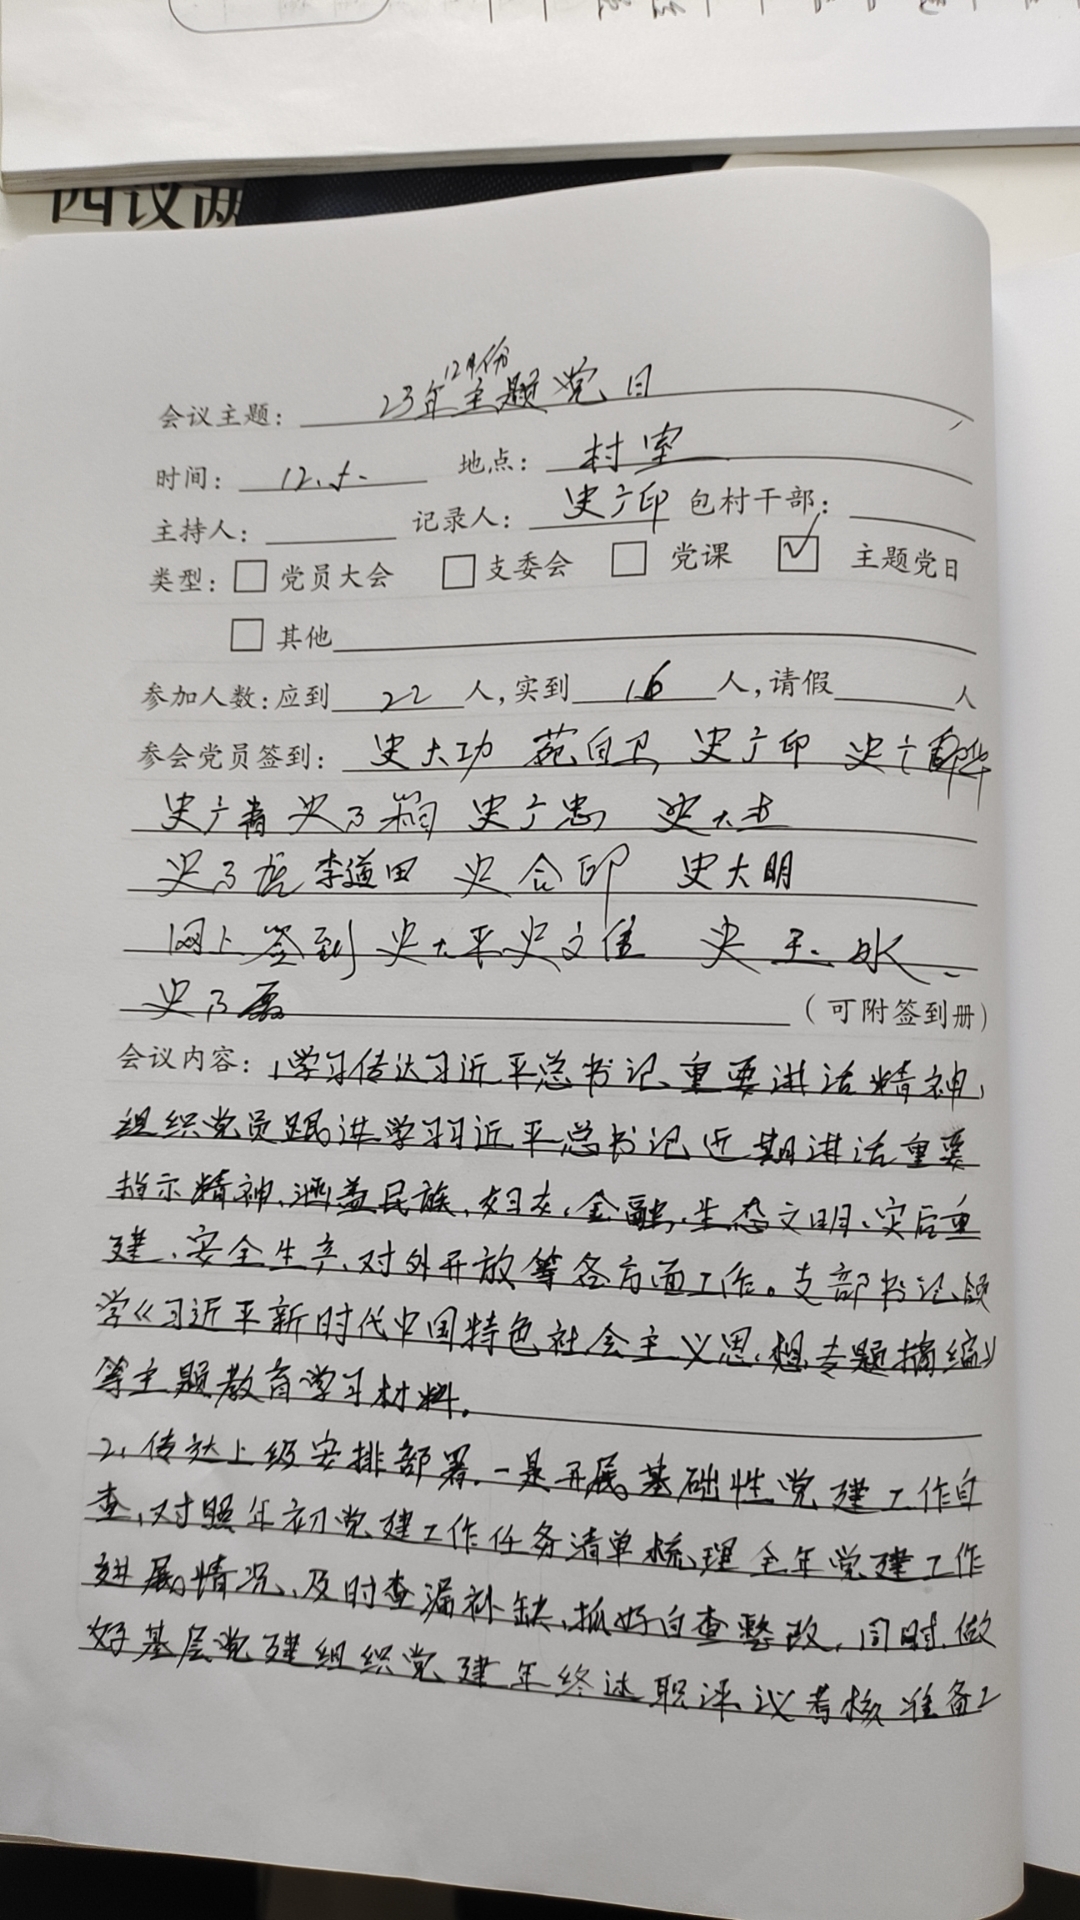 四议两
12月份
会议主题: 23年主题党日
时间: 12.5. 地点: 村室
主持人: 记录人: 史广印 包村干部:
类型: 党员大会 支委会 党课 ☑ 主题党日
其他
参加人数: 应到 22 人, 实到 16 人, 请假 人
参会党员签到: 史大功 苑自卫 史广印 史广
史广 史乃 史广忠 史大
史乃 李道田 史合印 史大明
网上签到 史大平 史文 史 永
史乃磊 (可附签到册)
会议内容: 1学习传达习近平总书记重要讲话精神,
组织党员跟进学习习近平总书记近期讲话重要
指示精神、涵盖民族、妇女、金融、生态文明、灾后重
建、安全生产、对外开放等各方面工作。支部书记领
学《习近平新时代中国特色社会主义思想专题摘编》
等主题教育学习材料。
2、传达上级安排部署。一是开展基础性党建工作自
查,对照年初党建工作任务清单梳理全年党建工作
进展情况、及时查漏补缺、抓好自查整改,同时,做
好基层党建组织党建年终述职评议考核准备工